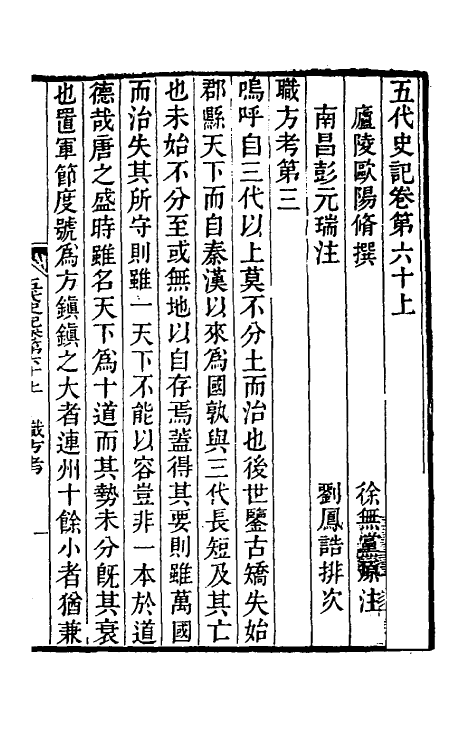 五代史記卷第六十上
廬陵歐陽脩撰 徐無黨原注
南昌彭元瑞注 劉鳳誥排次
職方考第三
嗚呼自三代以上莫不分土而治也後世鑒古矯失始
郡縣天下而自秦漢以來為國孰與三代長短及其亡
也未始不分至或無地以自存焉蓋得其要則雖萬國
而治失其所守則雖一天下不能以容豈非一本於道
德哉唐之盛時雖名天下為十道而其勢未分旣其衰
也置軍節度號為方鎮鎮之大者連州十餘小者猶兼
五代史記卷第六十上 職方考 一